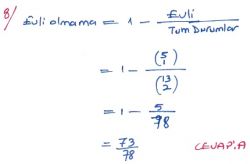 8/ Evli olmama = 1 - Evli / Tüm Durumlar
= 1 - (5 1) / (13 2)
= 1 - 5/78
= 73/78
CEVAP: A